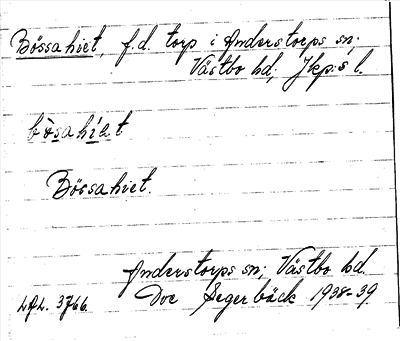 Bössahiet, f.d. torp i Anderstorps sn;
Västbo hd, Jkp:s l.
bòsahíet
Bössahiet.
Anderstorps sn; Västbo hd.
Ove Segerbäck 1938-39.
LAL. 3766.